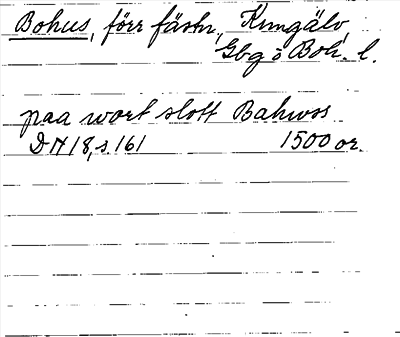 Bohus, förr fästn., Kungälv,
Gbg o Boh. l.
paa wort slott Bahwss
DN 8, s. 161 1500 or.